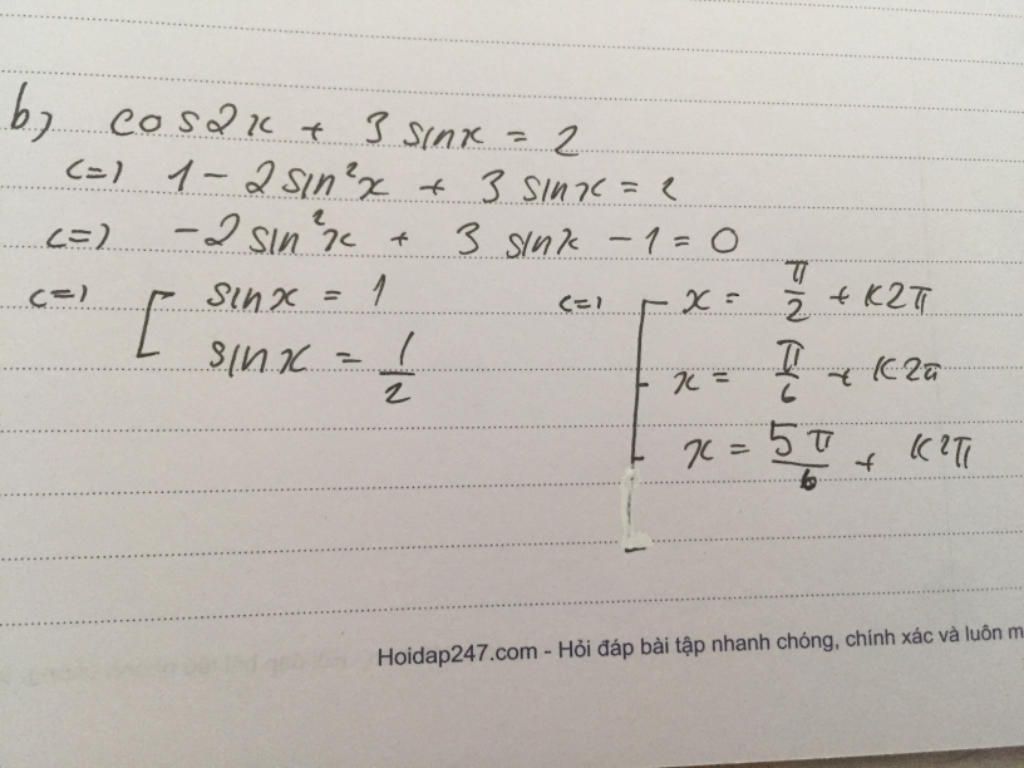 b) cos2x + 3 sinx = 2
<=> 1 - 2 sin²x + 3 sinx = 2
<=> -2 sin²x + 3 sinx - 1 = 0
<=> [ sinx = 1 <=> [ x = π/2 + K2π
sinx = 1/2 x = π/6 + K2π
x = 5π/6 + K2π
Hoidap247.com - Hỏi đáp bài tập nhanh chóng, chính xác và luôn m